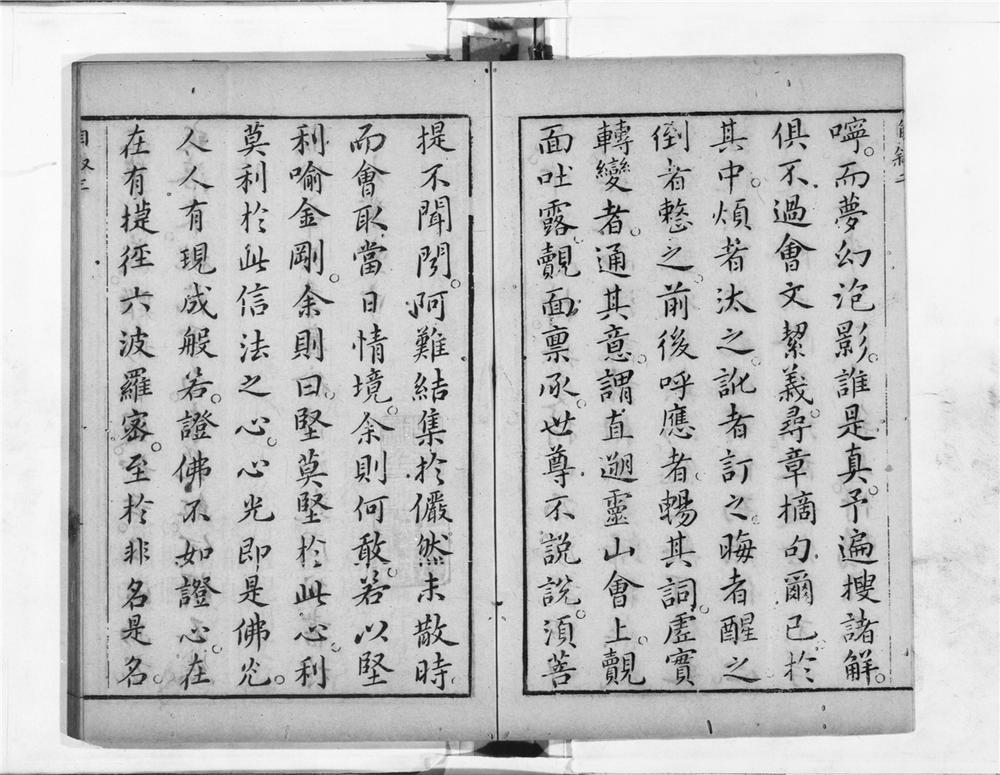 嚀。而夢幻泡影。誰是真。予遍搜諸解。
俱不過會文絜義。尋章摘句爾已。於
其中。煩者汰之。訛者訂之。晦者醒之
倒者整之。前後呼應者。暢其詞。虛實
轉變者。通其意。謂直遡靈山會上。覿
面吐露。覿面稟承。世尊不說說。須菩
提不聞聞。阿難結集於儼然未散時。
而會取當日情境。余則何敢。若以堅
利喻金剛。余則曰。堅莫堅於此心。利
莫利於此信法之心。心光即是佛光。
人人有現成般若。證佛不如證心。在
在有捷徑六波羅密。至於非名是名。